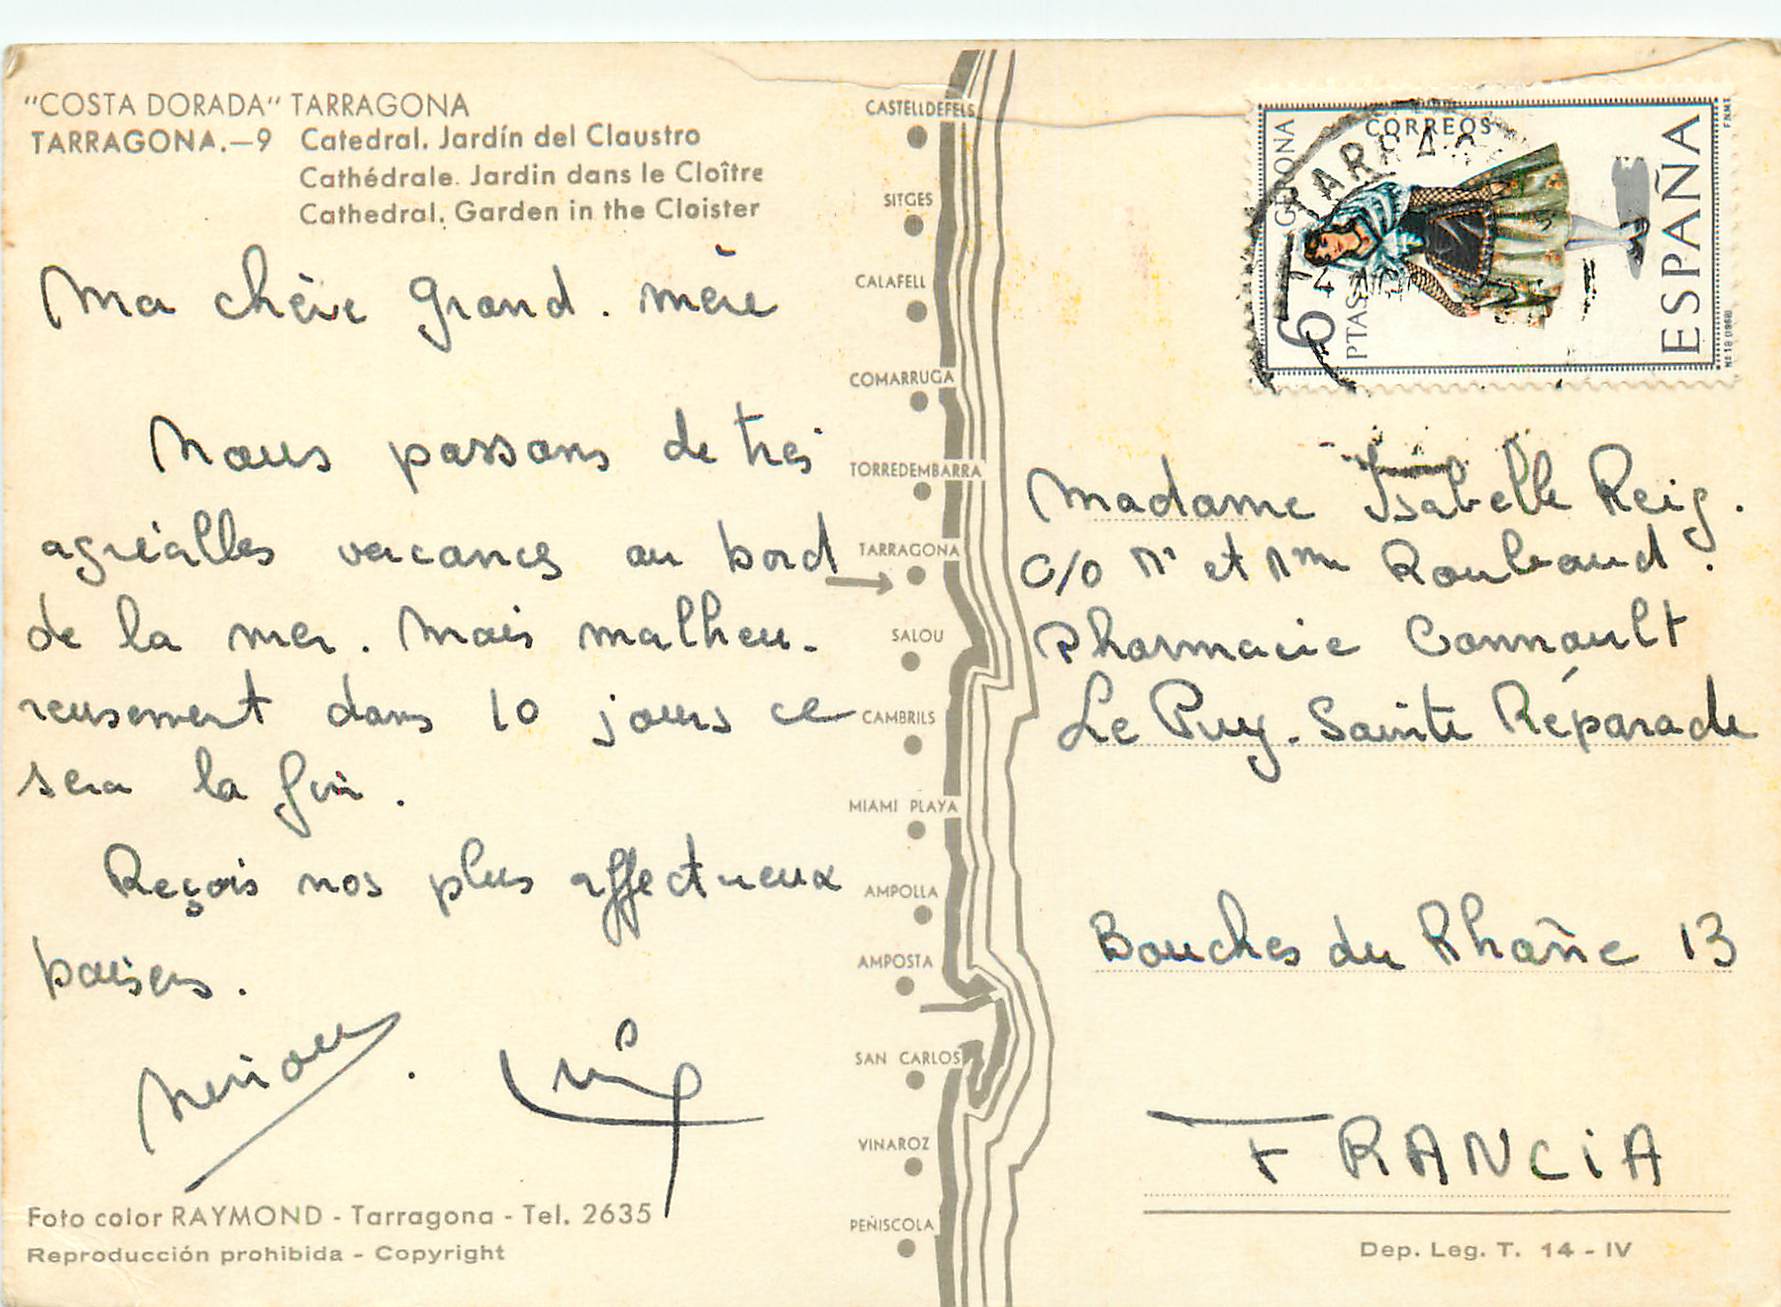 "COSTA DORADA" TARRAGONA
TARRAGONA.—9 Catedral. Jardín del Claustro
Cathédrale. Jardin dans le Cloître
Cathedral. Garden in the Cloister
Ma chère Grand. mère
Nous passons de très
agréables vacances au bord
de la mer. Mais malheu-
reusement dans 10 jours ce
sera la fin.
Reçois nos plus affectueux
baisers.
Foto color RAYMOND - Tarragona - Tel. 2635
Reproducción prohibida - Copyright
CASTELLDEFELS
SITGES
CALAFELL
COMARRUGA
TORREDEMBARRA
TARRAGONA
SALOU
CAMBRILS
MIAMI PLAYA
AMPOLLA
AMPOSTA
SAN CARLOS
VINAROZ
PEÑISCOLA
GERONA
CORREOS
6 PTAS
ESPAÑA
F.N.M.T.
Madame Isabelle Reig.
c/o Mr et Mme Roubaud.
Pharmacie Connault
Le Puy-Sainte Réparade
Bouches du Rhône 13
FRANCiA
Dep. Leg. T. 14 - IV